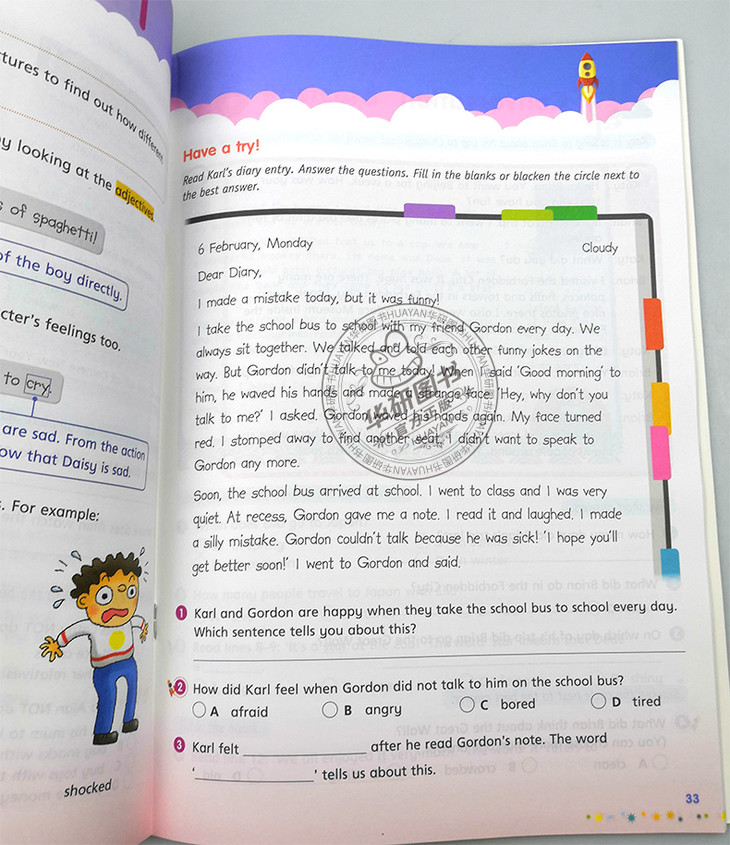 tures to find out how different
y looking at the adjectives
s of spaghetti!
of the boy directly.
cter's feelings too.
to cry.
are sad. From the action
ow that Daisy is sad.
. For example:
shocked
Have a try!
Read Karl's diary entry. Answer the questions. Fill in the blanks or blacken the circle next to
the best answer.
6 February, Monday
Cloudy
Dear Diary,
I made a mistake today, but it was funny!
I take the school bus to school with my friend Gordon every day. We
always sit together. We talked and told each other funny jokes on the
way. But Gordon didn't talk to me today! When I said 'Good morning' to
him, he waved his hands and made a strange face. 'Hey, why don't you
talk to me?' I asked. Gordon waved his hands again. My face turned
red. I stomped away to find another seat. I didn't want to speak to
Gordon any more.
Soon, the school bus arrived at school. I went to class and I was very
quiet. At recess, Gordon gave me a note. I read it and laughed. I made
a silly mistake. Gordon couldn't talk because he was sick! 'I hope you'll
get better soon!' I went to Gordon and said.
1 Karl and Gordon are happy when they take the school bus to school every day.
Which sentence tells you about this?
2 How did Karl feel when Gordon did not talk to him on the school bus?
A afraid B angry C bored D tired
3 Karl felt ______ after he read Gordon's note. The word
'______' tells us about this.
33
华研图书
官方正版
HUAYAN华研图书